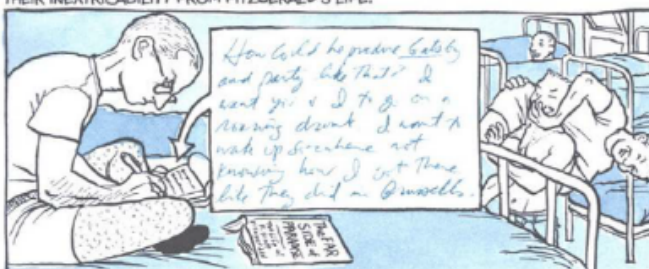 THEIR INEXTRICABILITY FROM FITZGERALD'S LIFE.
How could he produce Gatsby
and party like that? I
want you & I to go on a
roaring drunk. I want to
wake up somewhere not
knowing how I got there
like they did in Brussells.
The FAR
SIDE of
PARADISE